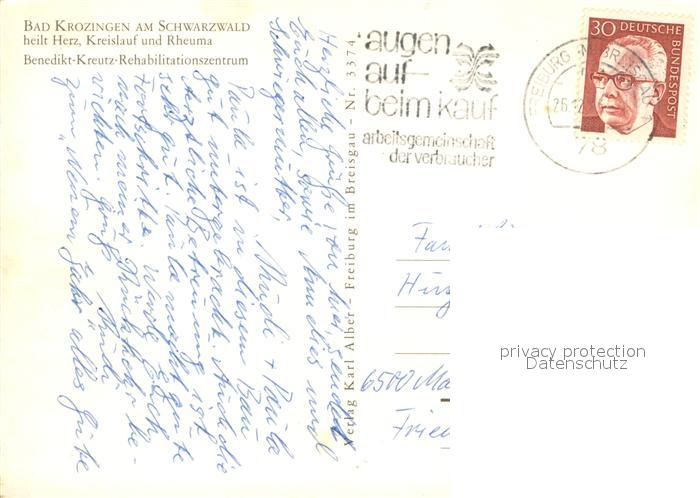 BAD KROZINGEN AM SCHWARZWALD
heilt Herz, Kreislauf und Rheuma
Benedikt-Kreutz-Rehabilitationszentrum
Herzliche Grüße von hier sendet
Euch allen, sowie Anneliese und
Schwiegermutter,
Trudi + Paula
Paula ist in diesem Bau
gut untergebracht. Auch die
ärztliche Betreuung ist
sehr gut. Paula macht gute
Fortschritte. Werde Euch
nach meiner Rückkehr be-
richten. Gruß Trudi
zum "Neuen Jahr" alles Gute
Verlag Karl Alber - Freiburg im Breisgau - Nr. 3374
augen
auf
beim kauf
arbeitsgemeinschaft
der verbraucher
FREIBURG
78
30 DEUTSCHE
BUNDESPOST
Fam
6500 Ma
privacy protection
Datenschutz